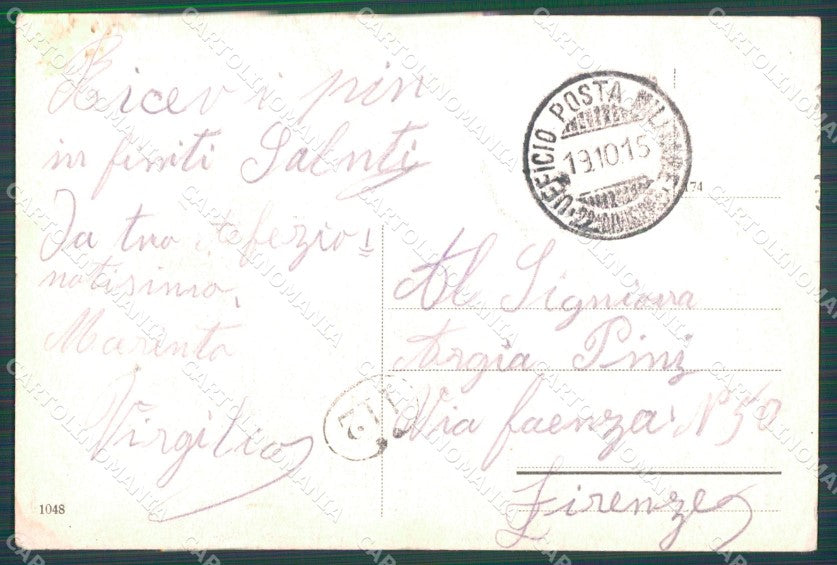 Ricev i pin
in finiti Salnti
Da tuo Afezio=
natisimo,
Marinto
Virgilio
UFFICIO POSTA MILITARE
19.10.15
174
Al Signiora
Argia Pinz
Via faenza N 50
Firenze
1048
CARTOLINOMANIA